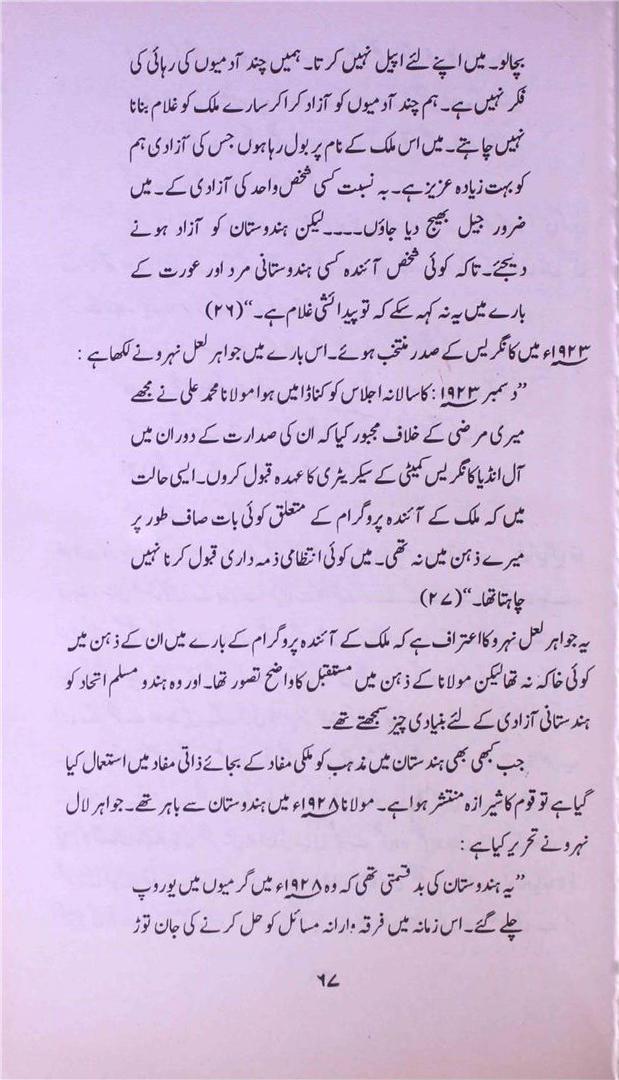 بچالو۔ میں اپنے لئے اپیل نہیں کرتا۔ ہمیں چند آدمیوں کی رہائی کی
فکر نہیں ہے۔ ہم چند آدمیوں کو آزاد کرا کر سارے ملک کو غلام بنانا
نہیں چاہتے۔ میں اس ملک کے نام پر بول رہا ہوں جس کی آزادی ہم
کو بہت زیادہ عزیز ہے۔ بہ نسبت کسی شخص واحد کی آزادی کے۔ میں
ضرور جیل بھیج دیا جاؤں۔۔۔۔لیکن ہندوستان کو آزاد ہونے
دیجئے۔ تاکہ کوئی شخص آئندہ کسی ہندوستانی مرد اور عورت کے
بارے میں یہ نہ کہہ سکے کہ تو پیدائشی غلام ہے۔“(۲۶)
۱۹۲۳ء میں کانگریس کے صدر منتخب ہوئے۔ اس بارے میں جواہر لعل نہرو نے لکھا ہے :
”دسمبر ۱۹۲۳: کا سالانہ اجلاس کو کناڈا میں ہوا مولانا محمد علی نے مجھے
میری مرضی کے خلاف مجبور کیا کہ ان کی صدارت کے دوران میں
آل انڈیا کانگریس کمیٹی کے سیکریٹری کا عہدہ قبول کروں۔ ایسی حالت
میں کہ ملک کے آئندہ پروگرام کے متعلق کوئی بات صاف طور پر
میرے ذہن میں نہ تھی۔ میں کوئی انتظامی ذمہ داری قبول کرنا نہیں
چاہتا تھا۔“(۲۷)
یہ جواہر لعل نہرو کا اعتراف ہے کہ ملک کے آئندہ پروگرام کے بارے میں ان کے ذہن میں
کوئی خاکہ نہ تھا لیکن مولانا کے ذہن میں مستقبل کا واضح تصور تھا۔ اور وہ ہندو مسلم اتحاد کو
ہندستانی آزادی کے لئے بنیادی چیز سمجھتے تھے۔
جب کبھی بھی ہندستان میں مذہب کو ملکی مفاد کے بجائے ذاتی مفاد میں استعمال کیا
گیا ہے تو قوم کا شیرازہ منتشر ہوا ہے۔ مولانا ۱۹۲۸ء میں ہندوستان سے باہر تھے۔ جواہر لال
نہرو نے تحریر کیا ہے :
”یہ ہندوستان کی بد قسمتی تھی کہ وہ ۱۹۲۸ء میں گرمیوں میں یوروپ
چلے گئے۔ اس زمانہ میں فرقہ وارانہ مسائل کو حل کرنے کی جان توڑ
۹۷